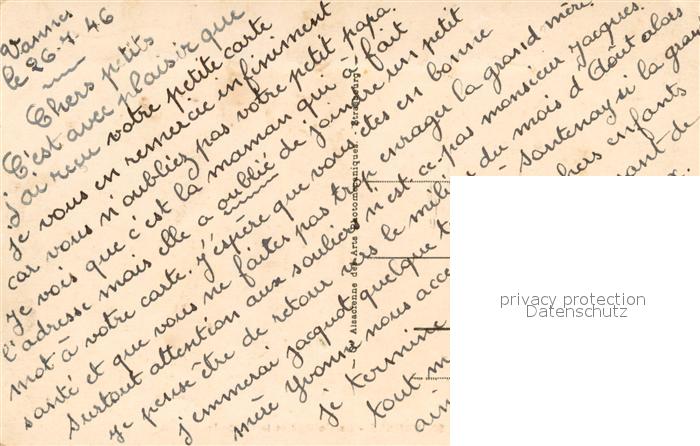 Vannes
le 26.7.46
Chers petits
C'est avec plaisir que
J'ai reçu votre petite carte
je vous en remercie infiniment
car vous n'oubliez pas votre petit papa.
Je vois que c'est la maman qui a fait
l'adresse mais elle a oublié de joindre un petit
mot à votre carte. J'espère que vous êtes en bonne
santé et que vous ne faites pas trop enrager la grand mère
Surtout attention aux souliers n'est-ce-pas monsieur Jacques.
je pense être de retour vers le milieu du mois d'Août alors
j'emmerai Jacquot quelque Santenay si la gran
mère Yvonne nous acce chers enfants
je termine ant de
tout m
ain
- Sté Alsacienne des Arts Photomécaniques. - Strasbourg -
privacy protection
Datenschutz